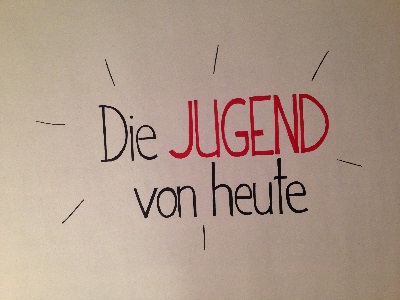 Die JUGEND
von heute